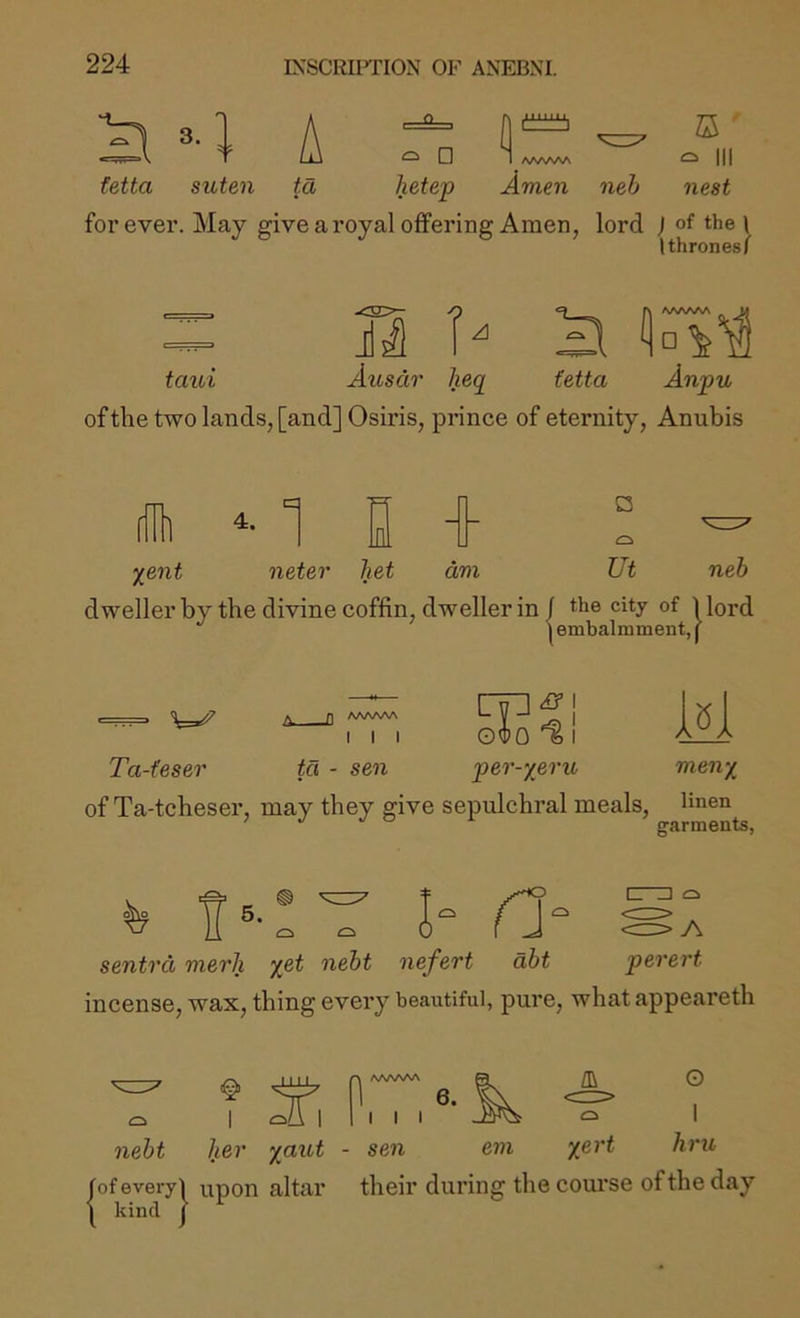 224 INSCRIPTION OF ANEBNI.
3.
tetta suten ṭā ḥetep Ȧmen neb nest
for ever. May give a royal offering Amen, lord { of the thrones }
taui Ȧusȧr ḥeq tetta Ȧnpu
of the two lands, [and] Osiris, prince of eternity, Anubis
4.
χent neter ḥet ȧm Ut neb
dweller by the divine coffin, dweller in { the city of embalmment, } lord
Ta-teser ṭā - sen per-χeru menχ
of Ta-tcheser, may they give sepulchral meals, linen garments,
5.
sentrȧ merḥ χet nebt nefert ābt perert
incense, wax, thing every beautiful, pure, what appeareth
6.
nebt ḥer χaut - sen em χert hru
{ of every kind } upon altar their during the course of the day